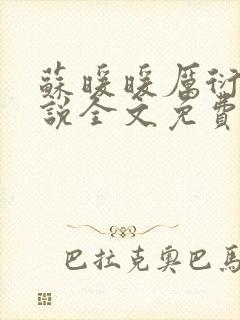 蘇暖暖厲衍
說全文免費
巴拉克奧巴馬